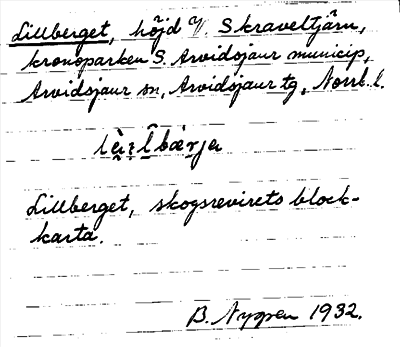 Lillberget, höjd V. Skraveltjärn,
kronoparken S. Arvidsjaur municip,
Arvidsjaur sn, Arvidsjaur tg, Norrb. l.
Lillberget, skogsrevirets block-
karta.
B. Nygren 1932.